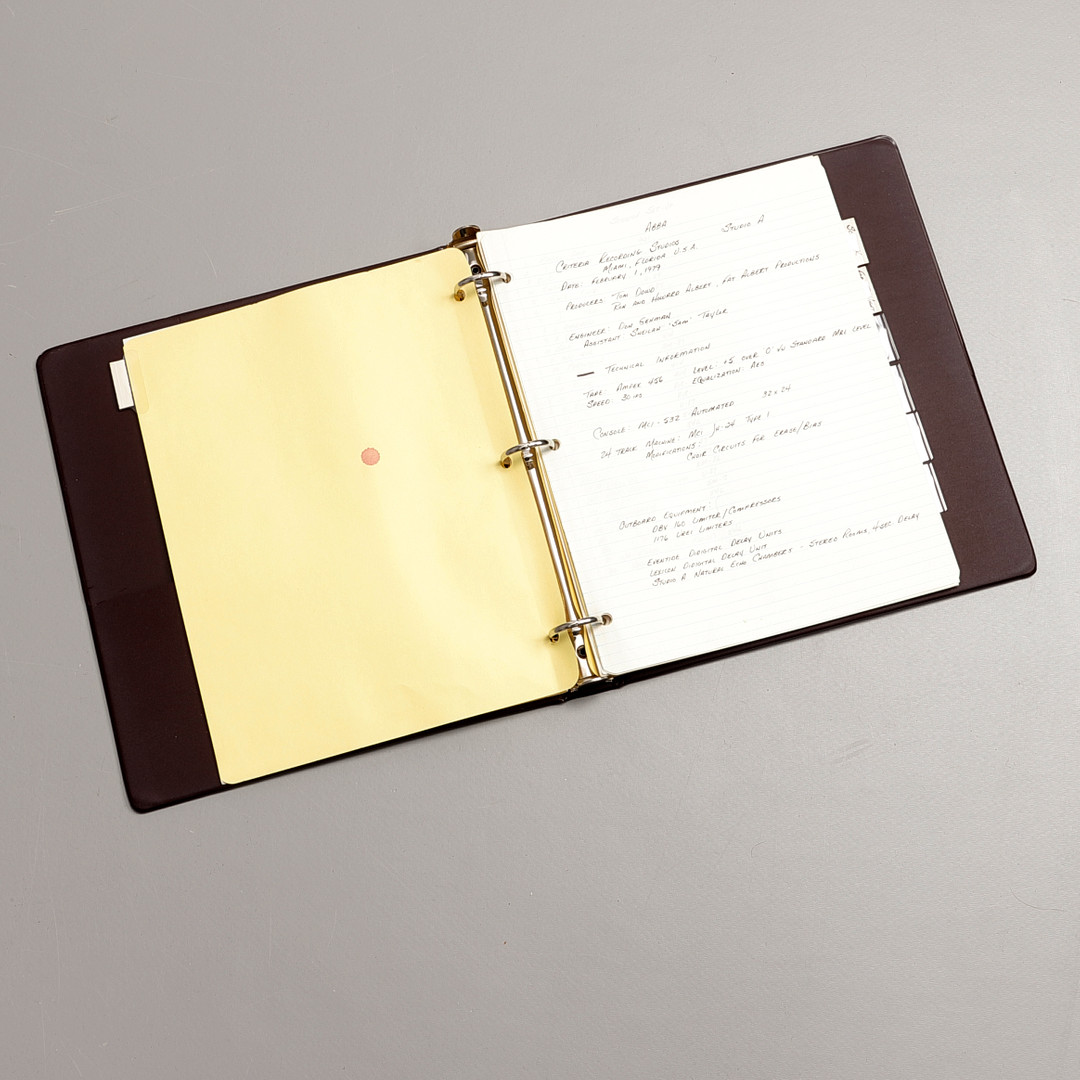 ABBA STUDIO A
CRITERIA RECORDING STUDIOS
MIAMI, FLORIDA U.S.A.
DATE: FEBRUARY 1, 1979
PRODUCERS: TOM DOWD
RON AND HOWARD ALBERT - FAT ALBERT PRODUCTIONS
ENGINEER: DON GEHMAN
ASSISTANT: SHEILAH "SAM" TAYLOR
— TECHNICAL INFORMATION
TAPE: AMPEX 456 LEVEL: +5 OVER "0" VU STANDARD MRL LEVEL
SPEED: 30 EQUALIZATION: AES
CONSOLE: MCI - 532 AUTOMATED 32 x 24
24 TRACK MACHINE: MCI JH-24 TYPE 1
MODIFICATIONS:
CIRCUITS FOR ERASE/BIAS
OUTBOARD EQUIPMENT
DBX 160 LIMITER/COMPRESSORS
1176 UREI LIMITERS
EVENTIDE DIDIGITAL DELAY UNITS
LEXICON DIDIGITAL DELAY UNIT
STUDIO A NATURAL ECHO CHAMBERS - STEREO ROOMS, 4 SEC. DELAY